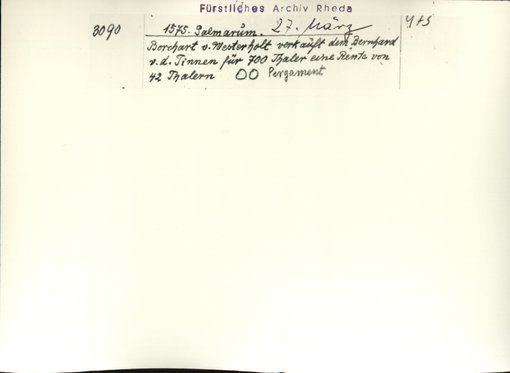 Fürstliches Archiv Rheda
3090 1575. Palmarum. 27. März
Borchart v. Westerholt verkauft dem Bernhard
v. d. Tinnen für 700 Thaler eine Rente von
42 Thalern Pergament